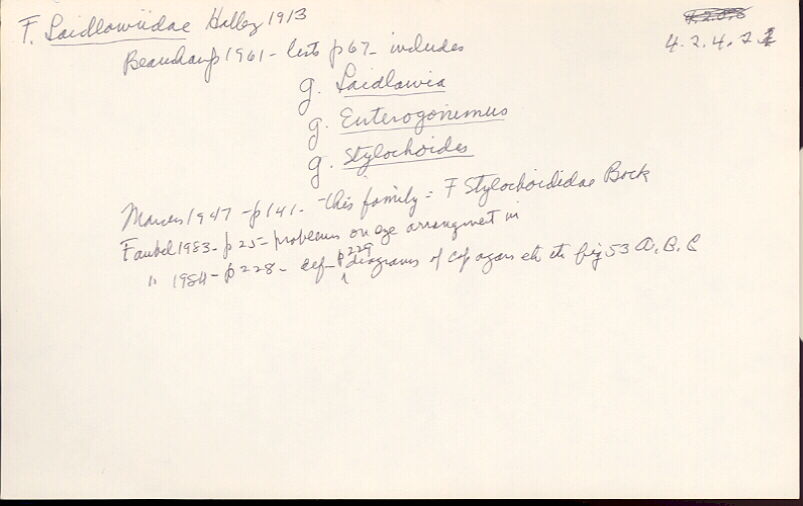 F. Laidlawiidae Hallez 1913
4.2.4.2
Beauchamp 1961 - lists p67 - includes
g. Laidlawia
g. Enterogonimus
g. Stylochoides
Marcus 1947 - p141 - this family = F Stylochoididae Bock
Faubel 1983 - p25 - problems on eye arrangment in
" 1984 - p228 - def - p229 diagrams of cop organs etc fig 53 A, B, C